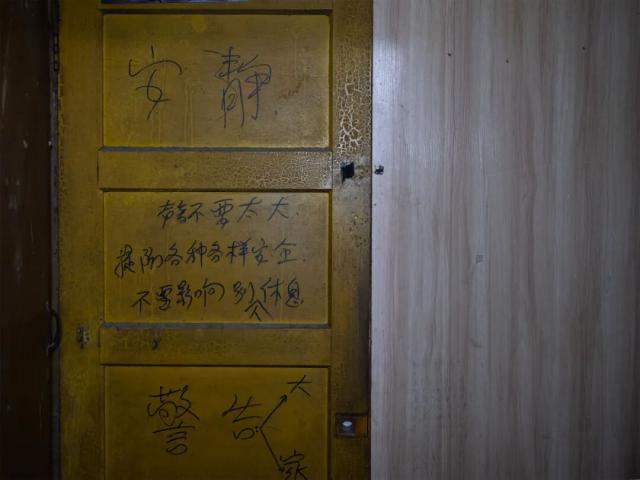 安静
不要太大
提防各种各样安全
不要影响别人休息
警告大家